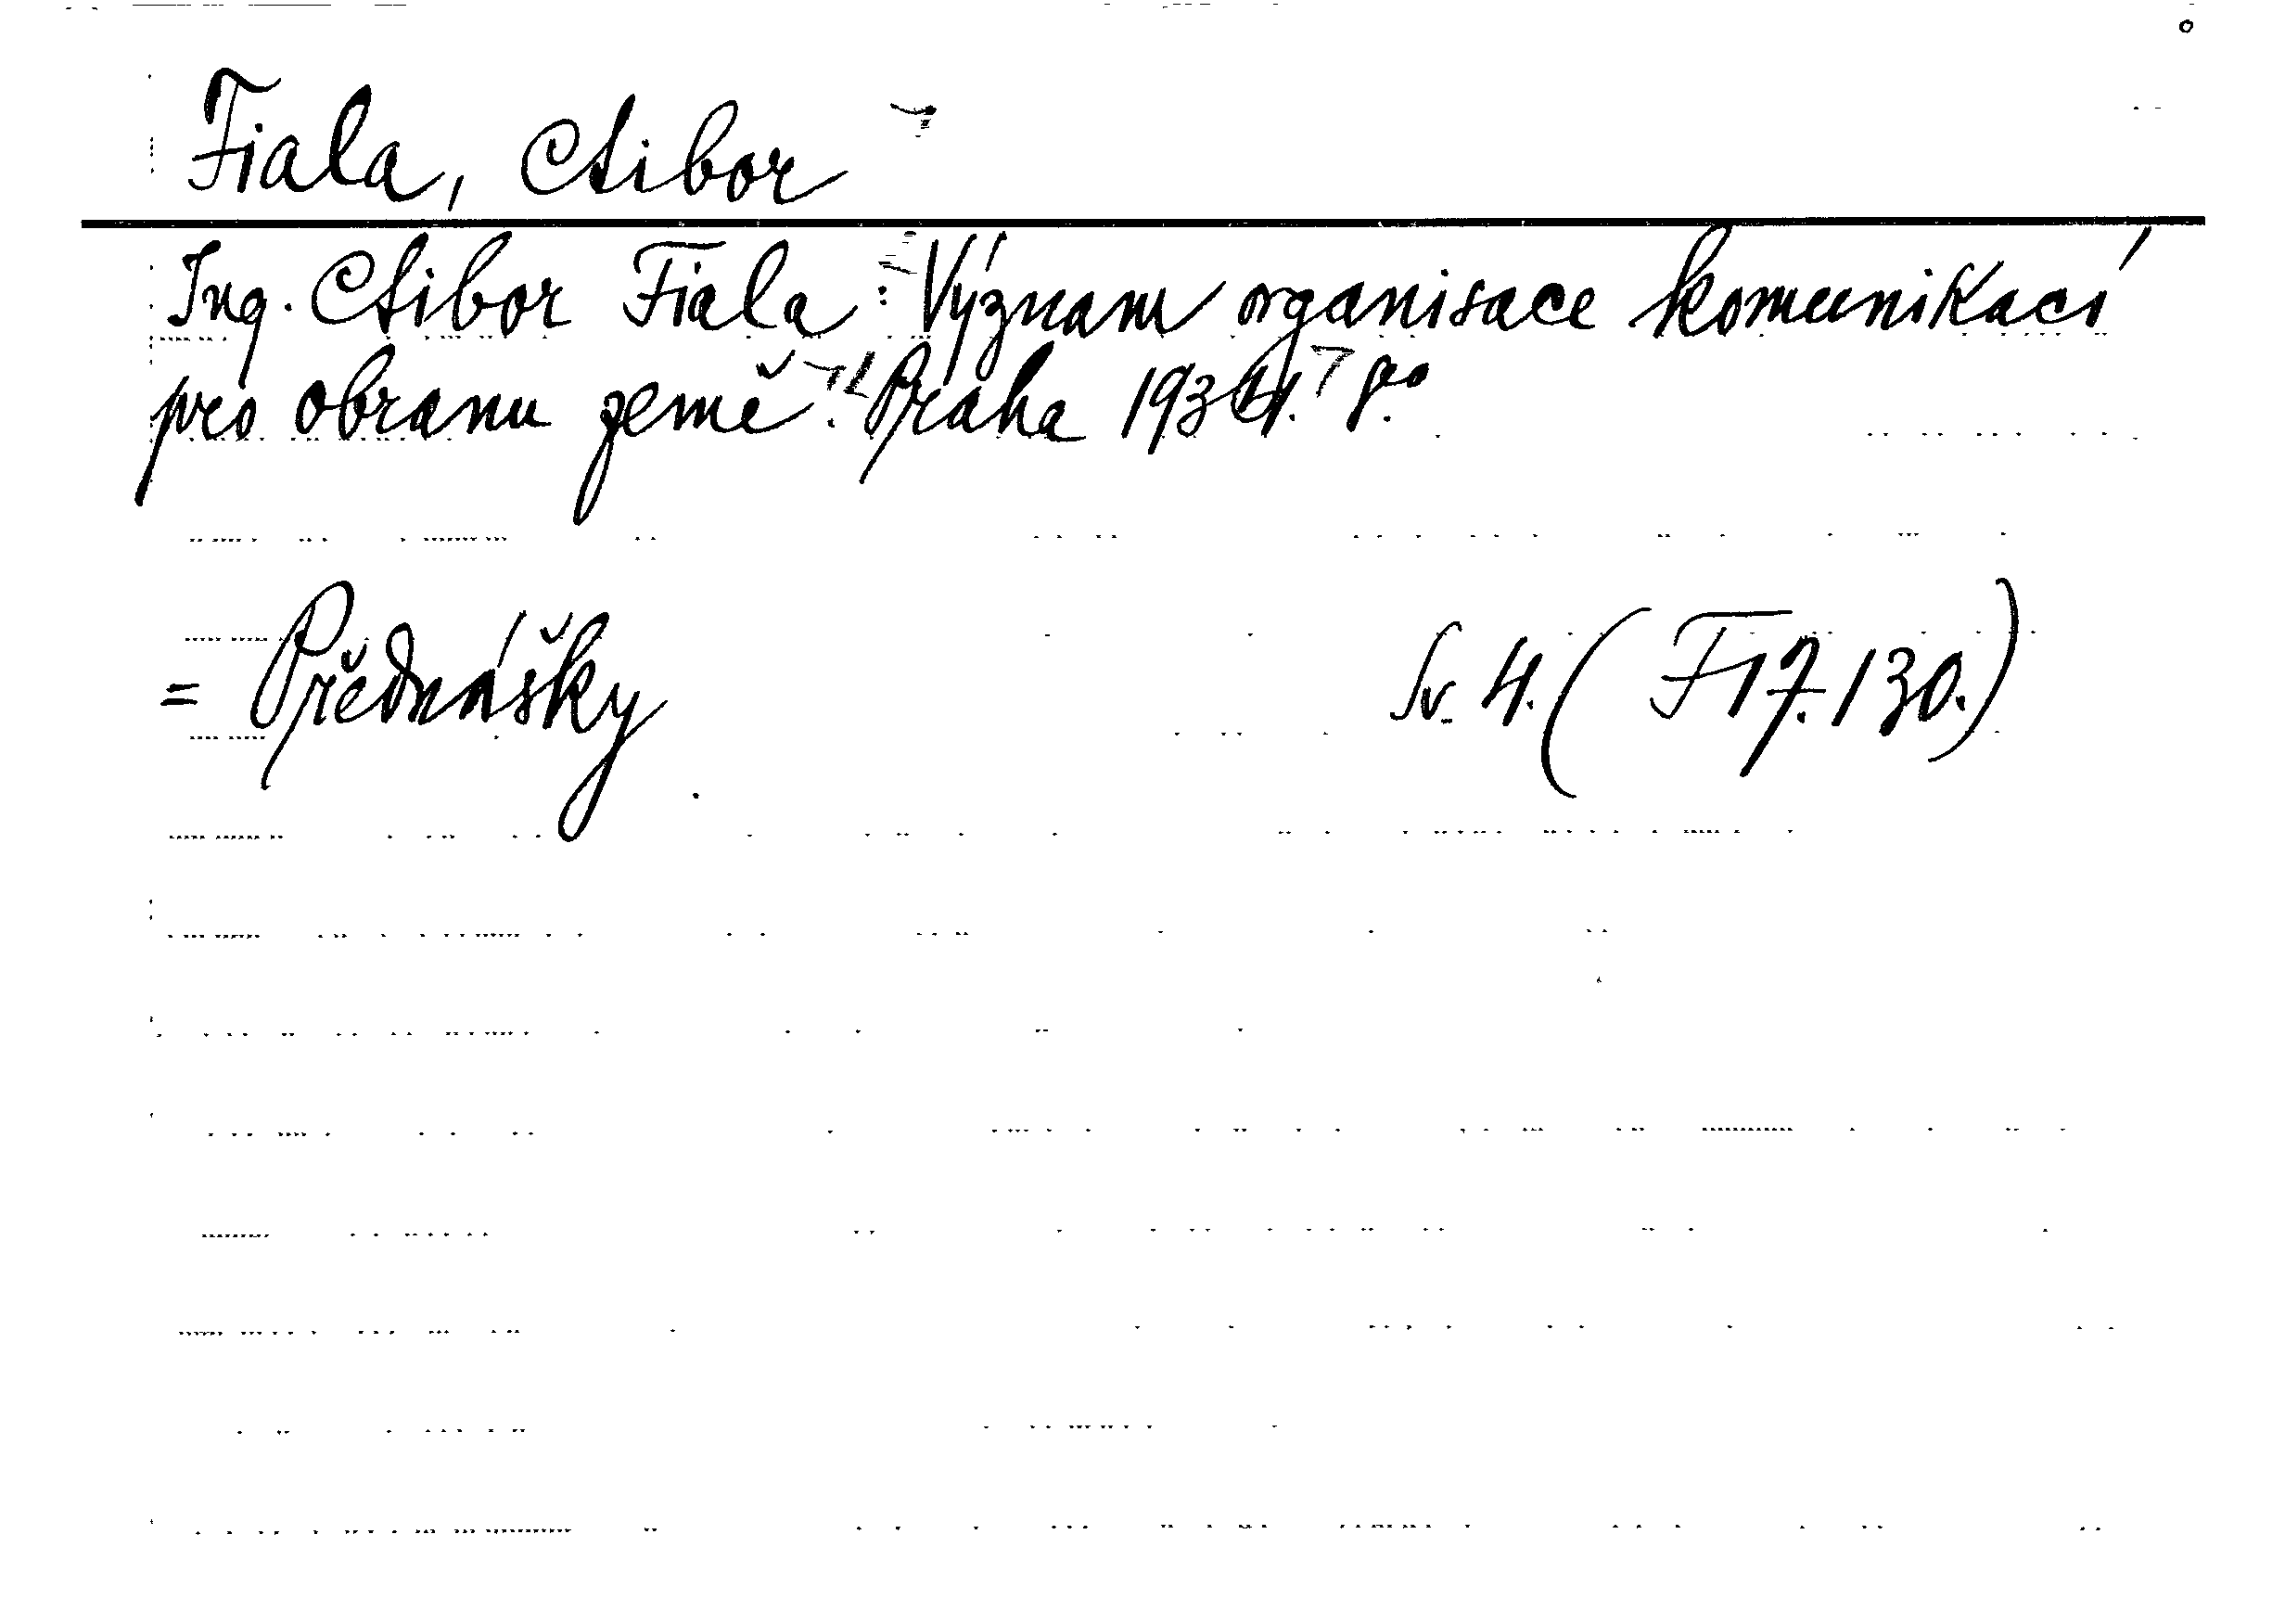 Fiala, Ctibor
Ing. Ctibor Fiala: Význam organisace komunikací
pro obranu země. Praha 1934. 8°
= Přednášky Sv. 4. (F 17.130.)